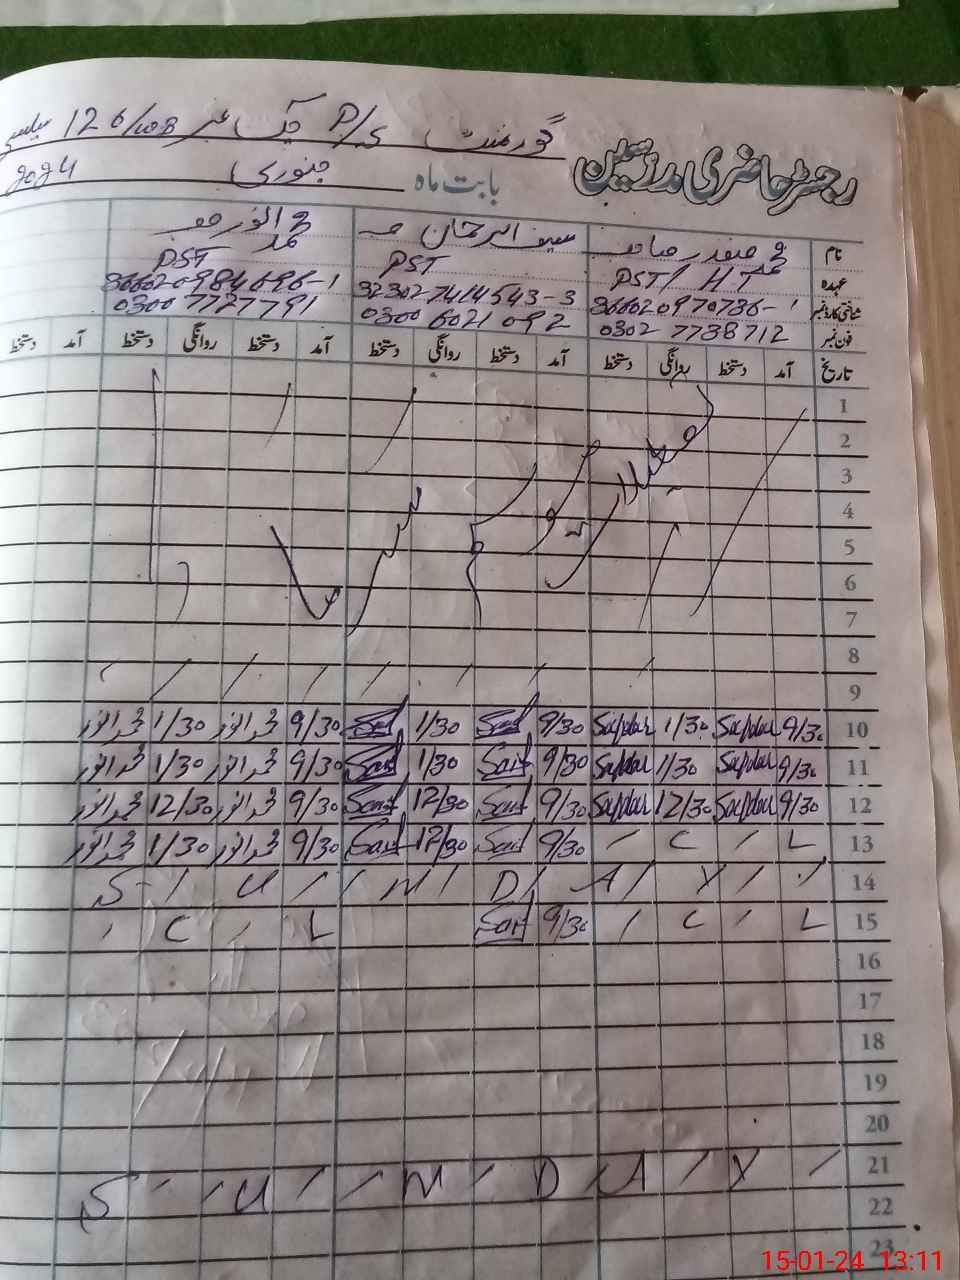 گورنمنٹ P/S چک نمبر 126/WB میلسی
رجسٹر حاضری مدرسین
بابت ماہ جنوری 2024
نام محمد صفدر صاحب سیف الرحمان صاحب محمد انور صاحب
عہدہ PST/HT PST PST
شناختی کارڈ نمبر 366020970736-1 323027414543-3 366020984696-1
فون نمبر 0302 7738712 0300 6021092 0300 7727791
تاریخ آمد دستخط روانگی دستخط آمد دستخط روانگی دستخط آمد دستخط روانگی دستخط آمد دستخط
1
2
3
4
5
6
7
8
9
10 9/30 Safdar 1/30 Safdar 9/30 Saif 1/30 Saif 9/30 محمد انور 1/30 محمد انور
11 9/30 Safdar 1/30 Safdar 9/30 Saif 1/30 Saif 9/30 محمد انور 1/30 محمد انور
12 9/30 Safdar 12/30 Safdar 9/30 Saif 12/30 Saif 9/30 محمد انور 12/30 محمد انور
13 C / L 9/30 Saif 12/30 Saif 9/30 محمد انور 1/30 محمد انور
14 S / U / N / D / A / Y
15 C / L 9/30 Saif C / L
16
17
18
19
20
21 S / U / N / D / A / Y
22
23
15-01-24 13:11